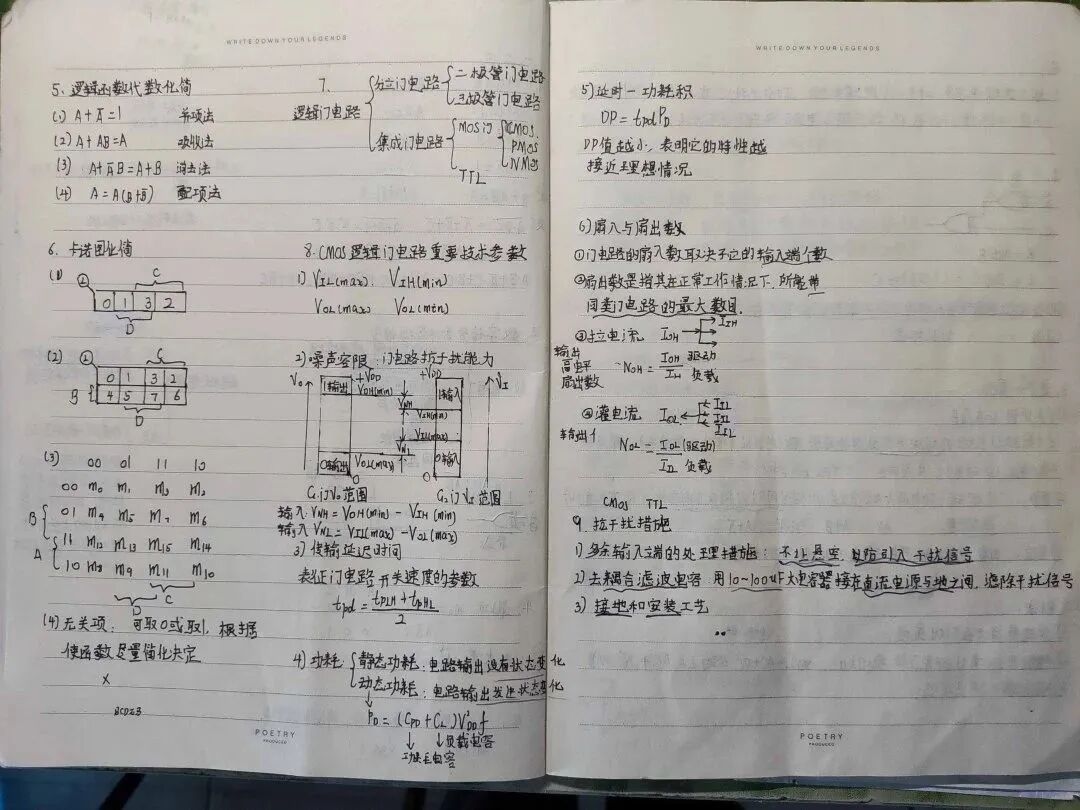 WRITE DOWN YOUR LEGENDS
5. 逻辑函数代数化简
(1) A+Ā=1 并项法
(2) A+AB=A 吸收法
(3) A+ĀB=A+B 消去法
(4) A=A(B+B̄) 配项法
6. 卡诺图化简
(1)
C
0 1 3 2
D
(2)
C
0 1 3 2
B 4 5 7 6
D
(3) 00 01 11 10
00 m₀ m₁ m₃ m₂
01 m₄ m₅ m₇ m₆
B
11 m₁₂ m₁₃ m₁₅ m₁₄
A
10 m₈ m₉ m₁₁ m₁₀
D C
(4) 无关项: 可取0或取1, 根据
使函数尽量简化决定
×
7.
逻辑门电路
分立门电路 二极管门电路
三极管门电路
集成门电路 MOS门 CMOS
PMOS
NMOS
TTL
8. CMOS逻辑门电路重要技术参数
1) VIL(max) VIH(min)
VOL(max) VOL(min)
2) 噪声容限: 门电路抗干扰能力
Vo +VDD +VDD VI
1输出 VOH(min) 1输入
VNH
VIH(min)
VIL(max)
VNL
0输出 VOL(max) 0输入
0 0
G₁门Vo范围 G₂门VI范围
输入 VNH = VOH(min) - VIH(min)
输入 VNL = VIL(max) - VOL(max)
3) 传输延迟时间
表征门电路开关速度的参数
tpd = (tPLH + tPHL)/2
4) 功耗 静态功耗: 电路输出没有状态变化
动态功耗: 电路输出发生状态变化
PD = (CPD + CL)V²DD f
负载电容
功耗电容
POETRY
PRODUCED
WRITE DOWN YOUR LEGENDS
5) 延时-功耗积
DP = tpd PD
DP值越小, 表明它的特性越
接近理想情况
6) 扇入与扇出数
①门电路的扇入数取决于它的输入端个数
②扇出数是指其在正常工作情况下, 所能带
同类门电路的最大数目.
③拉电流 IOH IIH
输出
高电平
扇出数
NOH = IOH 驱动 / IIH 负载
④灌电流 IOL IIL
IIL
IIL
NOL = IOL (驱动) / IIL 负载
CMOS TTL
9. 抗干扰措施
1) 多余输入端的处理措施: 不让悬空, 以防引入干扰信号
2) 去耦合滤波电容: 用10~100uF大电容器接在直流电源与地之间, 滤除干扰信号
3) 接地和安装工艺
POETRY
PRODUCED